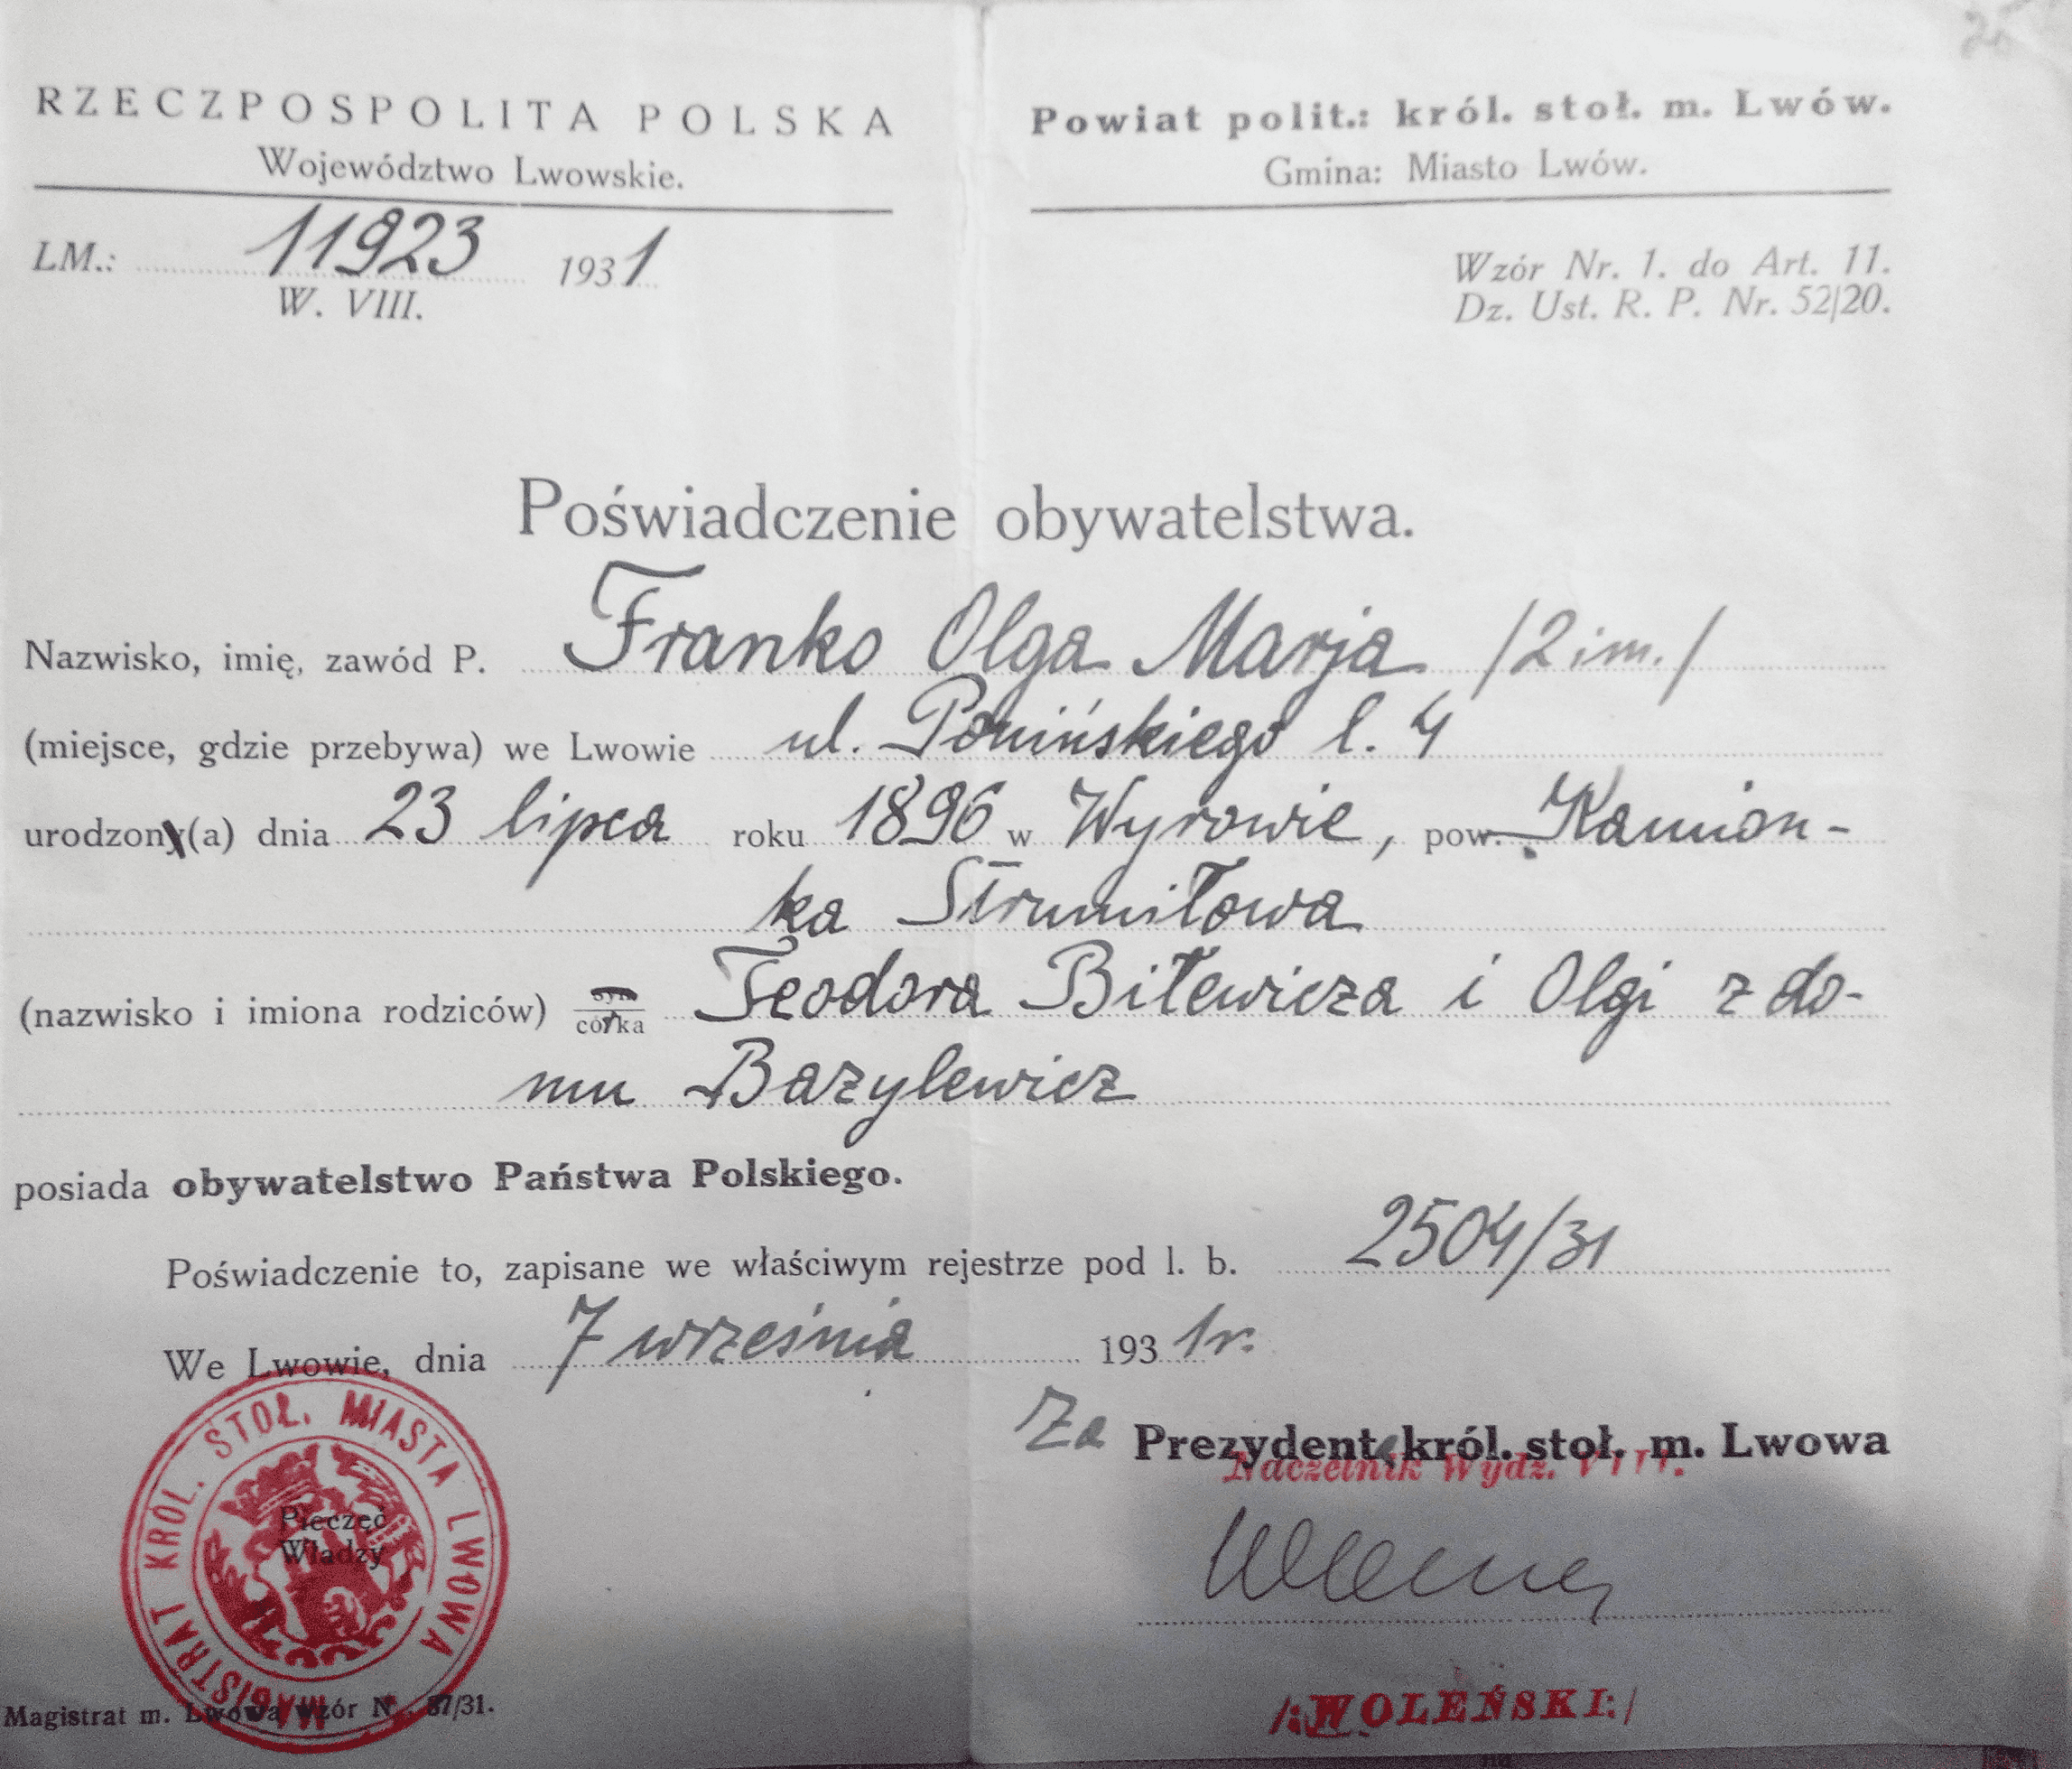 25
RZECZPOSPOLITA POLSKA
Województwo Lwowskie.
Powiat polit.: król. stoł. m. Lwów.
Gmina: Miasto Lwów.
LM.: 11923 1931
W. VIII.
Wzór Nr. 1. do Art. 11.
Dz. Ust. R. P. Nr. 52/20.
Poświadczenie obywatelstwa.
Nazwisko, imię, zawód P. Franko Olga Marja /2 im./
(miejsce, gdzie przebywa) we Lwowie ul. Ponińskiego l. 4
urodzony(a) dnia 23 lipca roku 1896 w Wyrowie, pow. Kamion-
ka Strumiłowa
(nazwisko i imiona rodziców) syn córka Teodora Biłewicza i Olgi z do-
mu Bazylewicz
posiada obywatelstwo Państwa Polskiego.
Poświadczenie to, zapisane we właściwym rejestrze pod l. b. 2504/31
We Lwowie, dnia 7 września 1931 r.
Za Prezydenta król. stoł. m. Lwowa
Naczelnik Wydz. VIII.
MAGISTRAT KRÓL. STOŁ. MIASTA LWOWA
Pieczęć
Władzy
/:WOLEŃSKI:/
Magistrat m. Lwowa wzór N. 87/31.